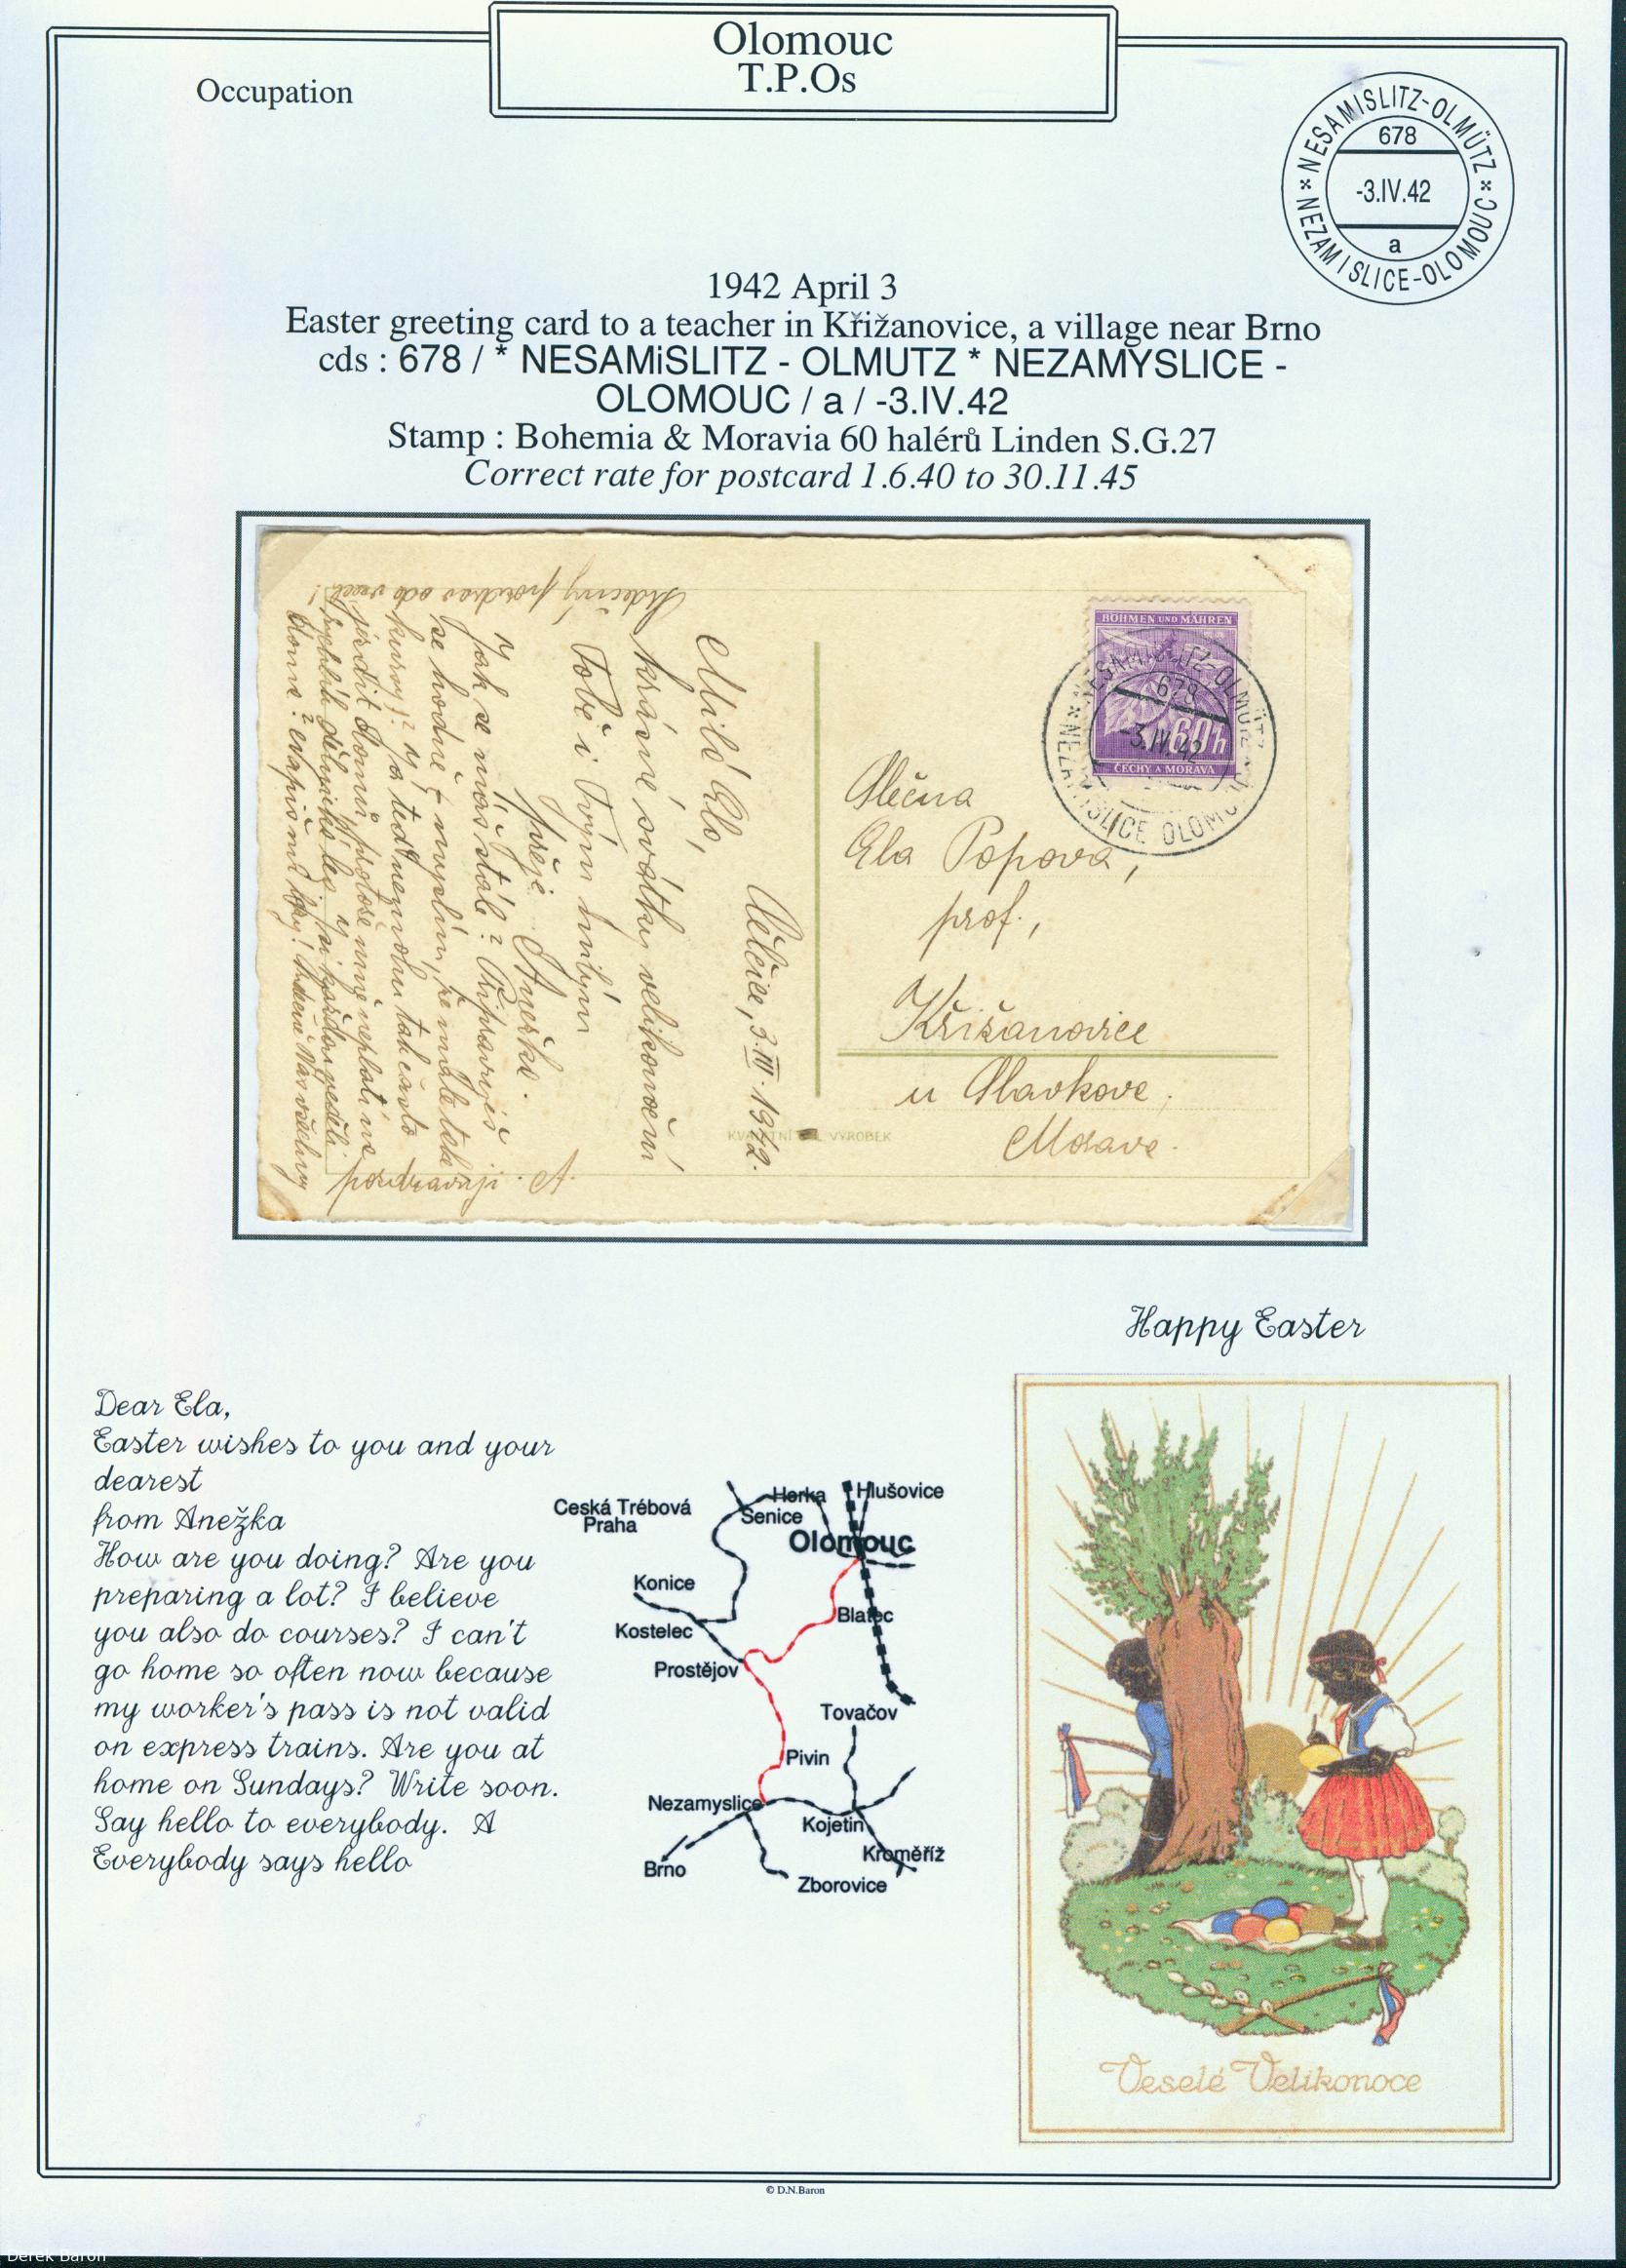 Olomouc
T.P.Os
Occupation
* NESAMISLITZ-OLMÜTZ *
678
-3.IV.42
a
NEZAMISLICE-OLOMOUC
1942 April 3
Easter greeting card to a teacher in Křižanovice, a village near Brno
cds : 678 / * NESAMiSLITZ - OLMUTZ * NEZAMYSLICE -
OLOMOUC / a / -3.IV.42
Stamp : Bohemia & Moravia 60 halérů Linden S.G.27
Correct rate for postcard 1.6.40 to 30.11.45
BÖHMEN UND MÄHREN
60h
ČECHY A MORAVA
678
-3.IV.42
Slečna
Ela Popova,
prof.,
Křižanovice
u Slavkova,
Morava.
3.III.1942.
Milá Elo,
krásné svátky velikonoční
Tobě i Tvým milým
přeje Anežka.
Jak se máš stále? Připravuješ
se hodně? myslím, že máte také
kursy? Já teď nemohu tak často
jezdit domů, protože mně neplatí na
pozdravuji. A.
Srdečný pozdrav ode všech!
VÝROBEK
Happy Easter
Dear Ela,
Easter wishes to you and your
dearest
from Anežka
How are you doing? Are you
preparing a lot? I believe
you also do courses? I can't
go home so often now because
my worker's pass is not valid
on express trains. Are you at
home on Sundays? Write soon.
Say hello to everybody. A
Everybody says hello
Ceská Trébová
Praha
Herka
Senice
Hlušovice
Olomouc
Konice
Kostelec
Blatec
Prostějov
Tovačov
Pivin
Nezamyslice
Kojetin
Kroměříž
Brno
Zborovice
Veselé Velikonoce
© D.N.Baron
Derek Baron